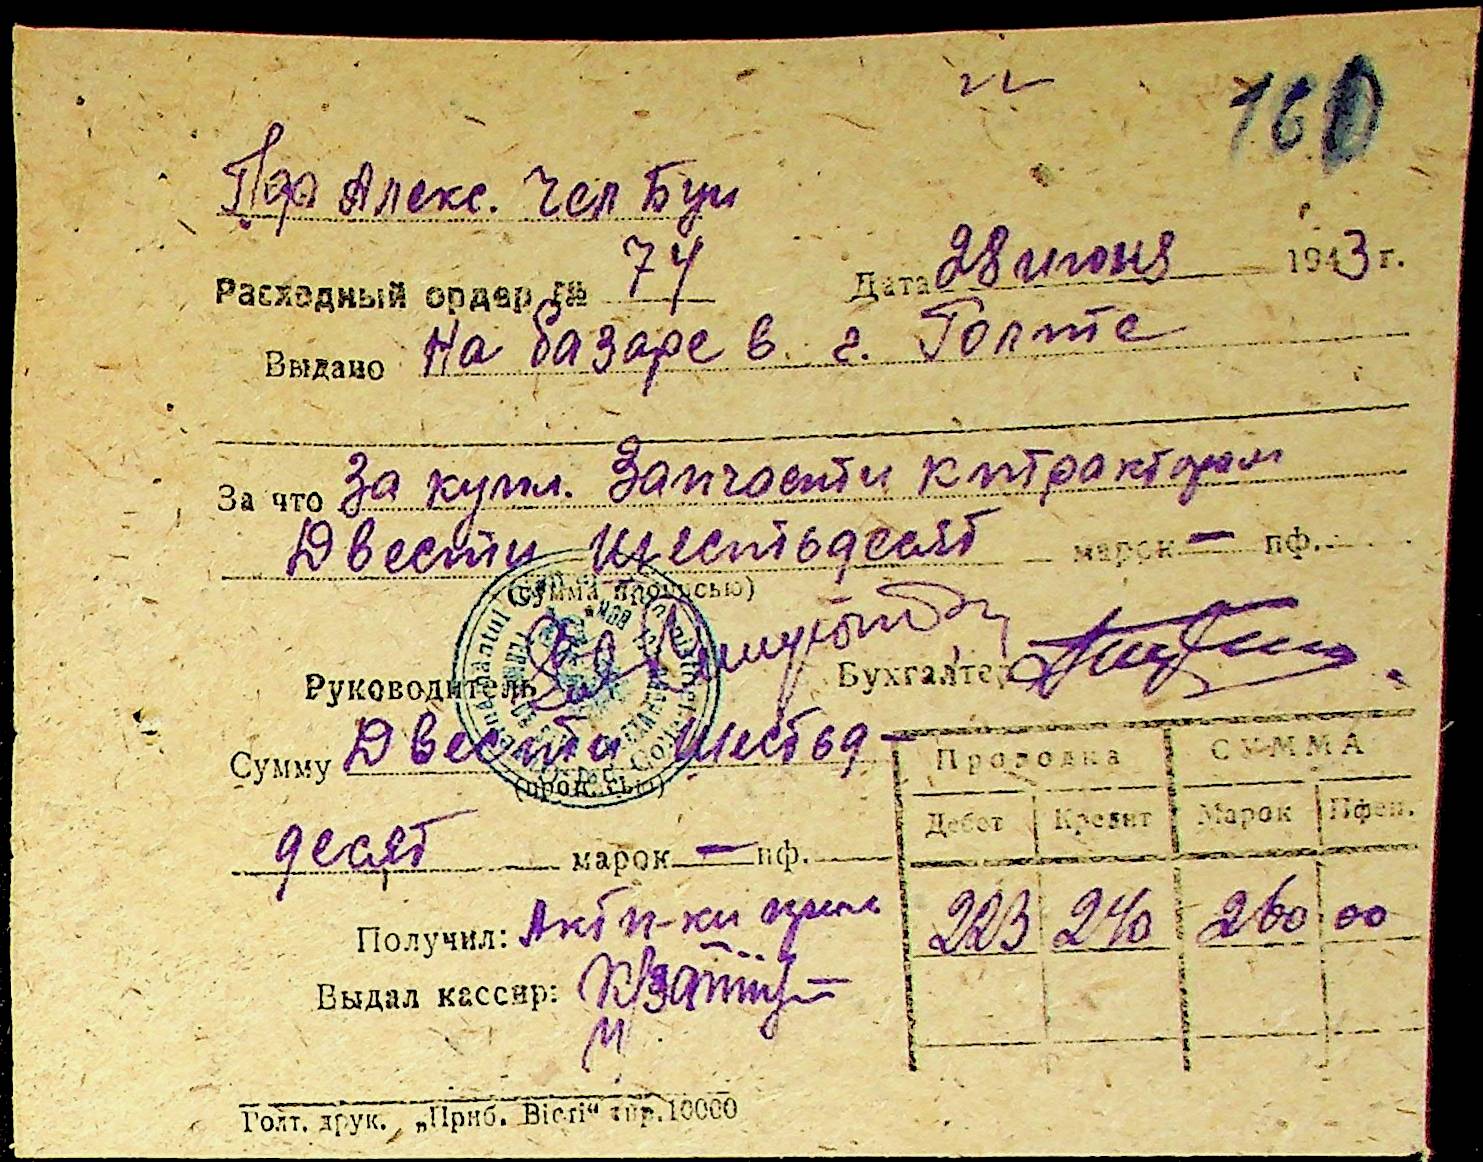 160
Алекс. Чсл Буи
Расходный ордер № 74 Дата 28 июня 1943 г.
Выдано На базаре в г. Голте
За что За купл. Запчасти к тракторам
Двести шестьдесят марок — пф.
(сумма прописью)
Руководитель Бухгалтер
Сумму Двести шестьд-
(прописью)
десят марок — пф.
Проводка СУММА
Дебет Кредит Марок Пфен.
223 240 260 00
Получил: Акт п-ки
Выдал кассир:
Голт. друк. „Приб. Вісті“ тир. 10000